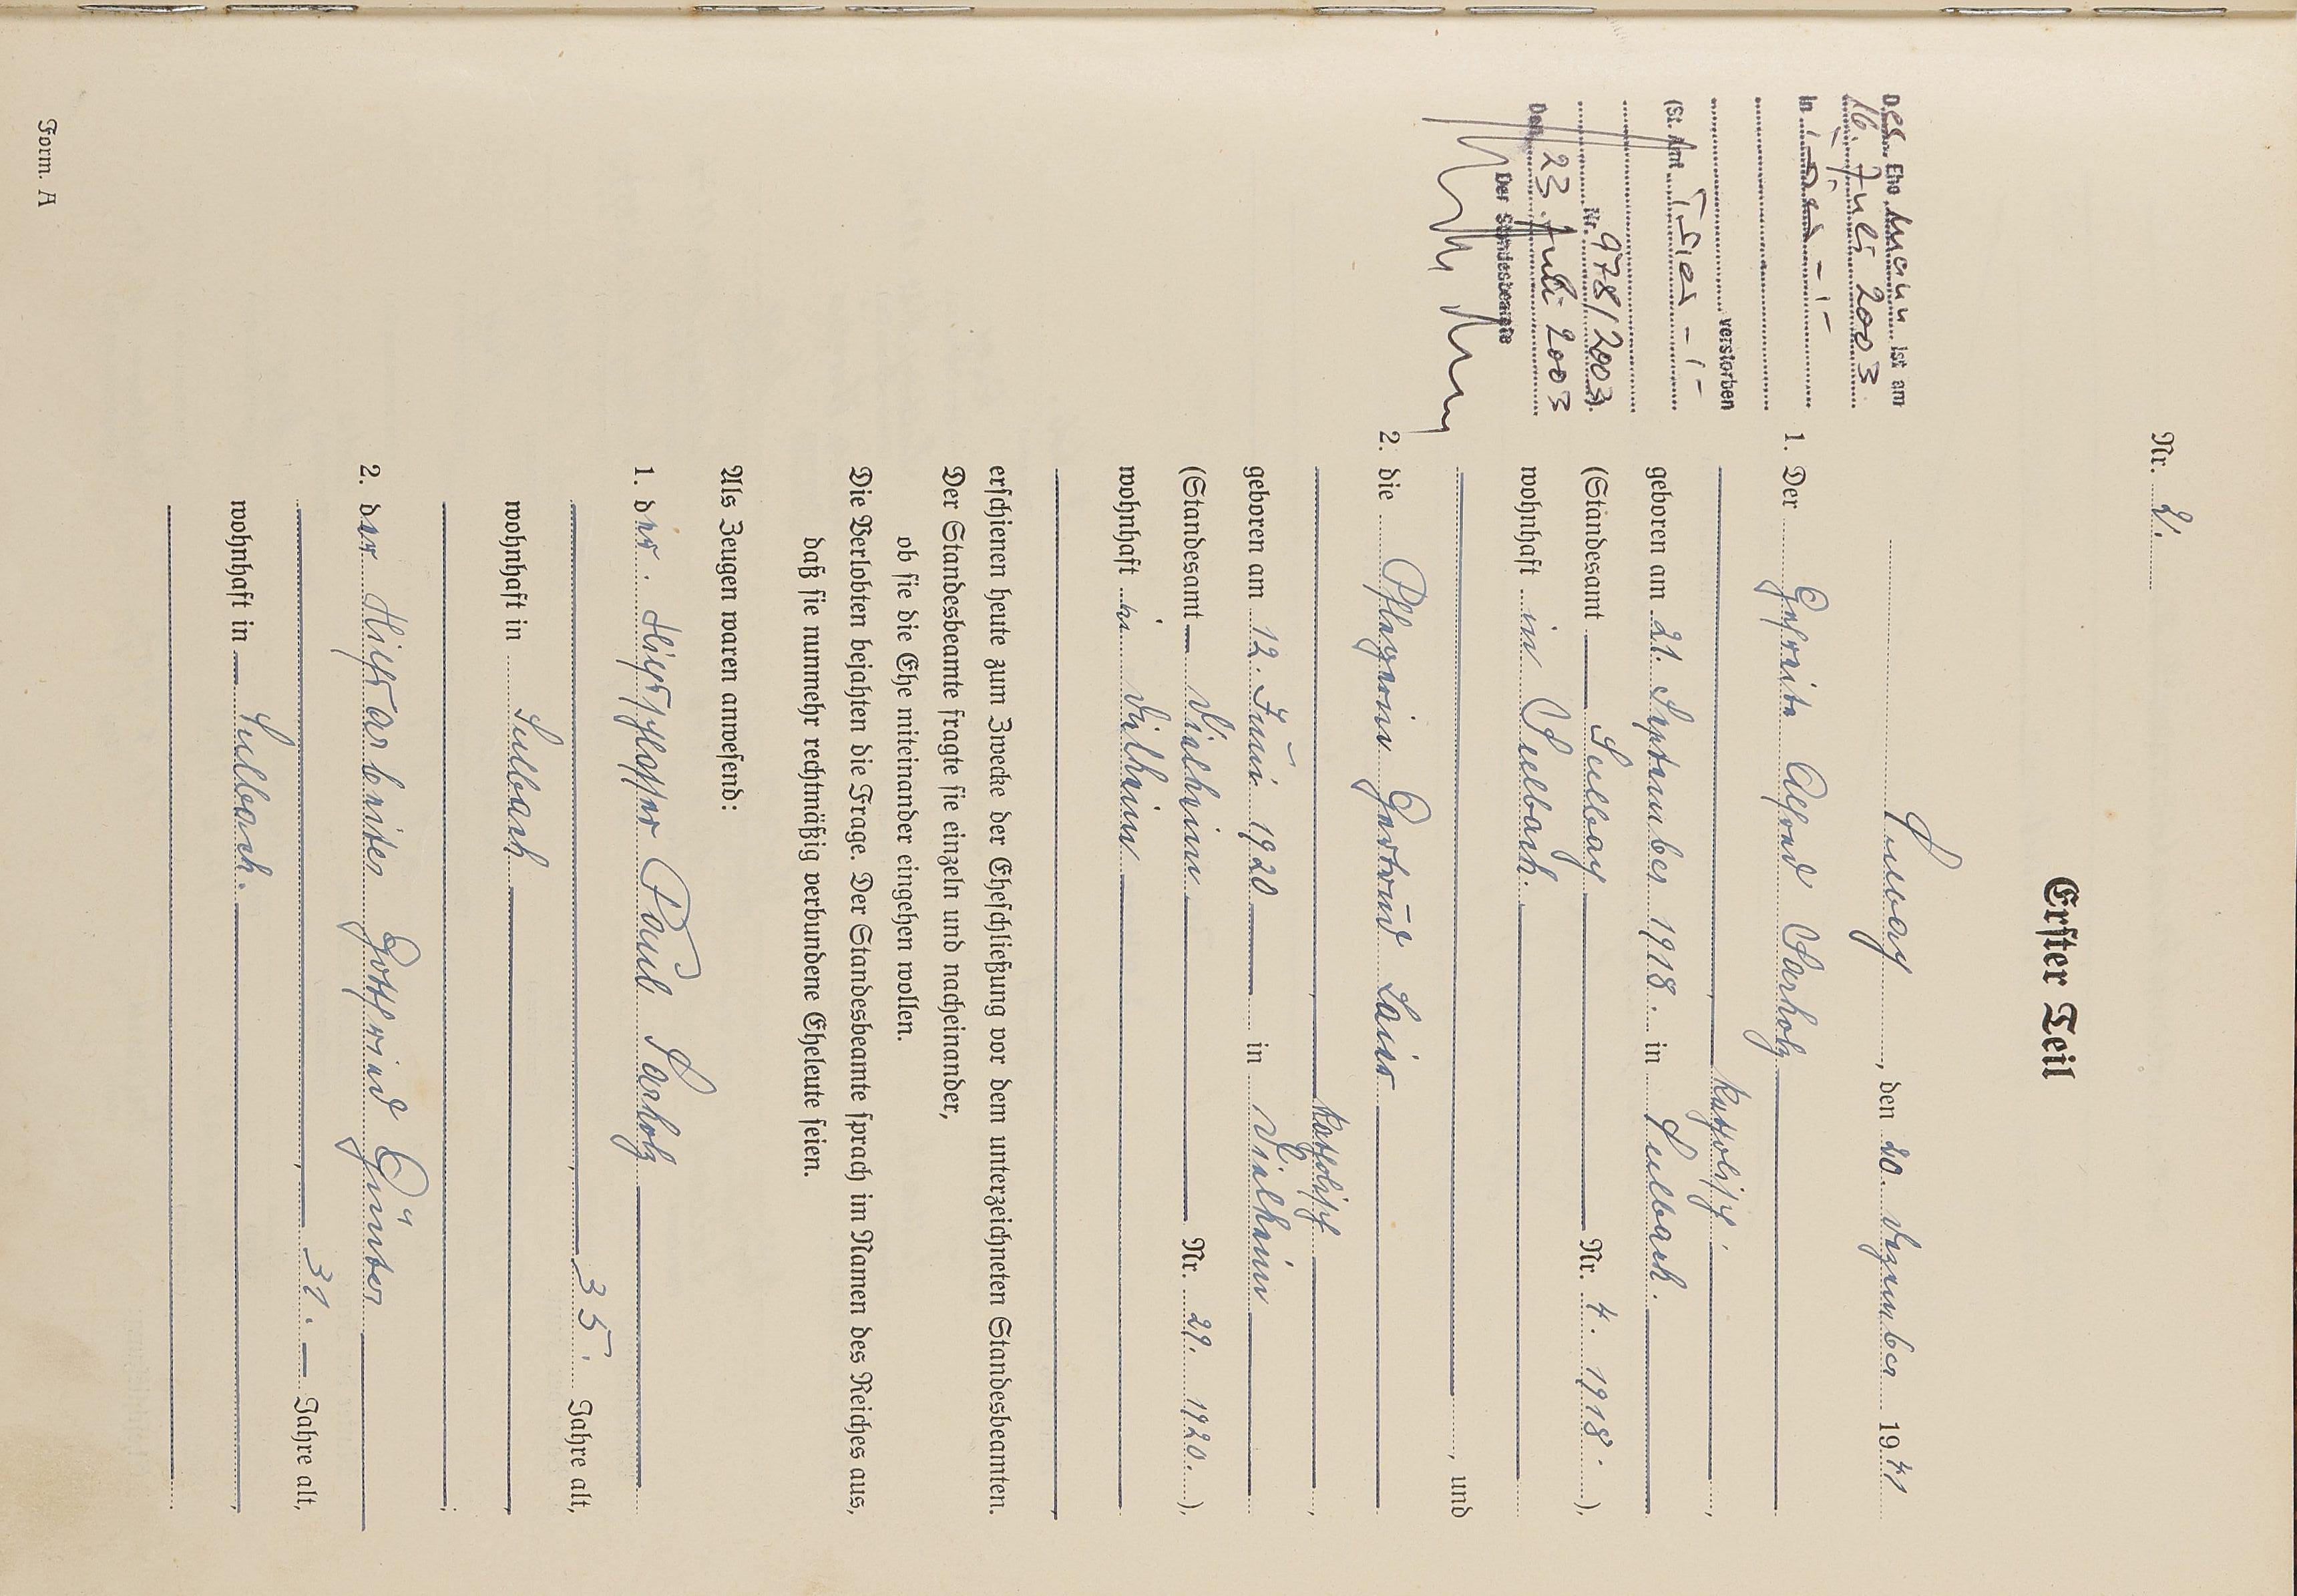 Nr. 2.
Erster Teil
, den 20. Dezember 1941
1. Der Gefreite Alfons Sarholz
katholisch.
geboren am 21. September 1918. in Sulbach.
(Standesamt Nr. 4. 1918.),
wohnhaft in Sulbach.
, und
2. die Pflegerin Gertrud Lair
katholisch
geboren am 12. Juni 1920 in
(Standesamt Nr. 29. 1920.),
wohnhaft in
erschienen heute zum Zwecke der Eheschließung vor dem unterzeichneten Standesbeamten.
Der Standesbeamte fragte sie einzeln und nacheinander,
ob sie die Ehe miteinander eingehen wollen.
Die Verlobten bejahten die Frage. Der Standesbeamte sprach im Namen des Reiches aus,
daß sie nunmehr rechtmäßig verbundene Eheleute seien.
Als Zeugen waren anwesend:
1. der Paul Sarholz
35. Jahre alt,
wohnhaft in Sulbach
;
2. der Hilfsarbeiter Gottfried Günter
31. Jahre alt,
wohnhaft in Sulbach.
Des Ehemann ist am
16. Juli 2003
in Trier -,-
verstorben
(St. Amt Trier -,-
Nr. 978/2003).
Den 23. Juli 2003
Der Standesbeamte
Form. A